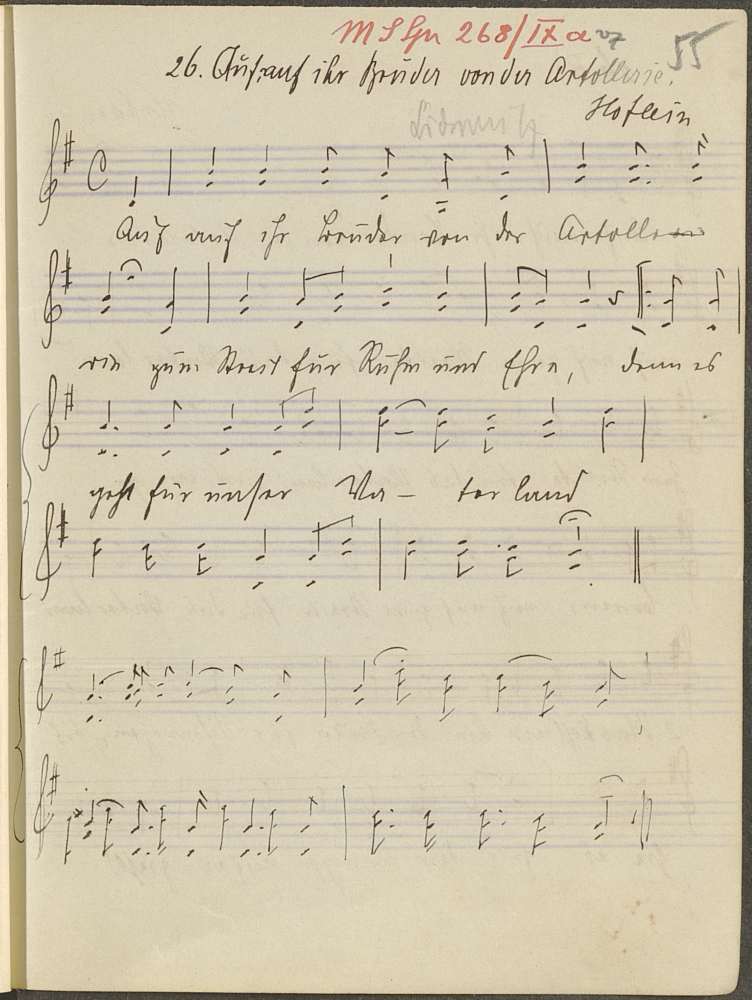 M S Gu 268/IX a 27
55
26. Auf, auf ihr Brüder von der Artollerie.
Hoflein
Auf auf ihr Brüder von der Artolle
rie zum Streit für Ruhm und Ehre, denn es
geht für unser Va- terland